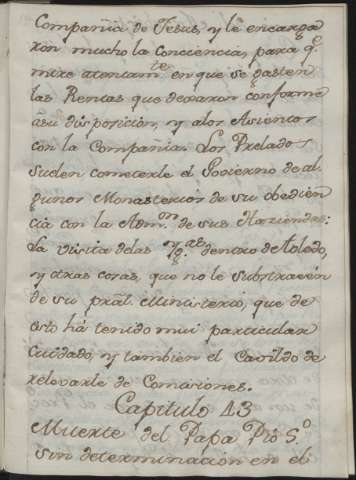 Compañia de Jesus, y le encarga
ron mucho la Conciencia, para q.e
mire atentam.te en que se gasten
las Rentas que dexaron conforme
a su disposicion, y a los Asientos
con la Compañia. Los Prelados
suelen cometerle el Govierno de al
gunos Monasterios de su obedien
cia con la Adm.on de sus Haziendas:
La visita de las Yg.as dentro de Toledo,
y otras cosas, que no le substraeen
de su pral. Ministerio, que de
esto há tenido mui particular
Cuidado, y tambien el Cavildo de
relevarle de Comisiones.
Capitulo 43
Muerte del Papa Pio 5.o
Sin determinacion en el